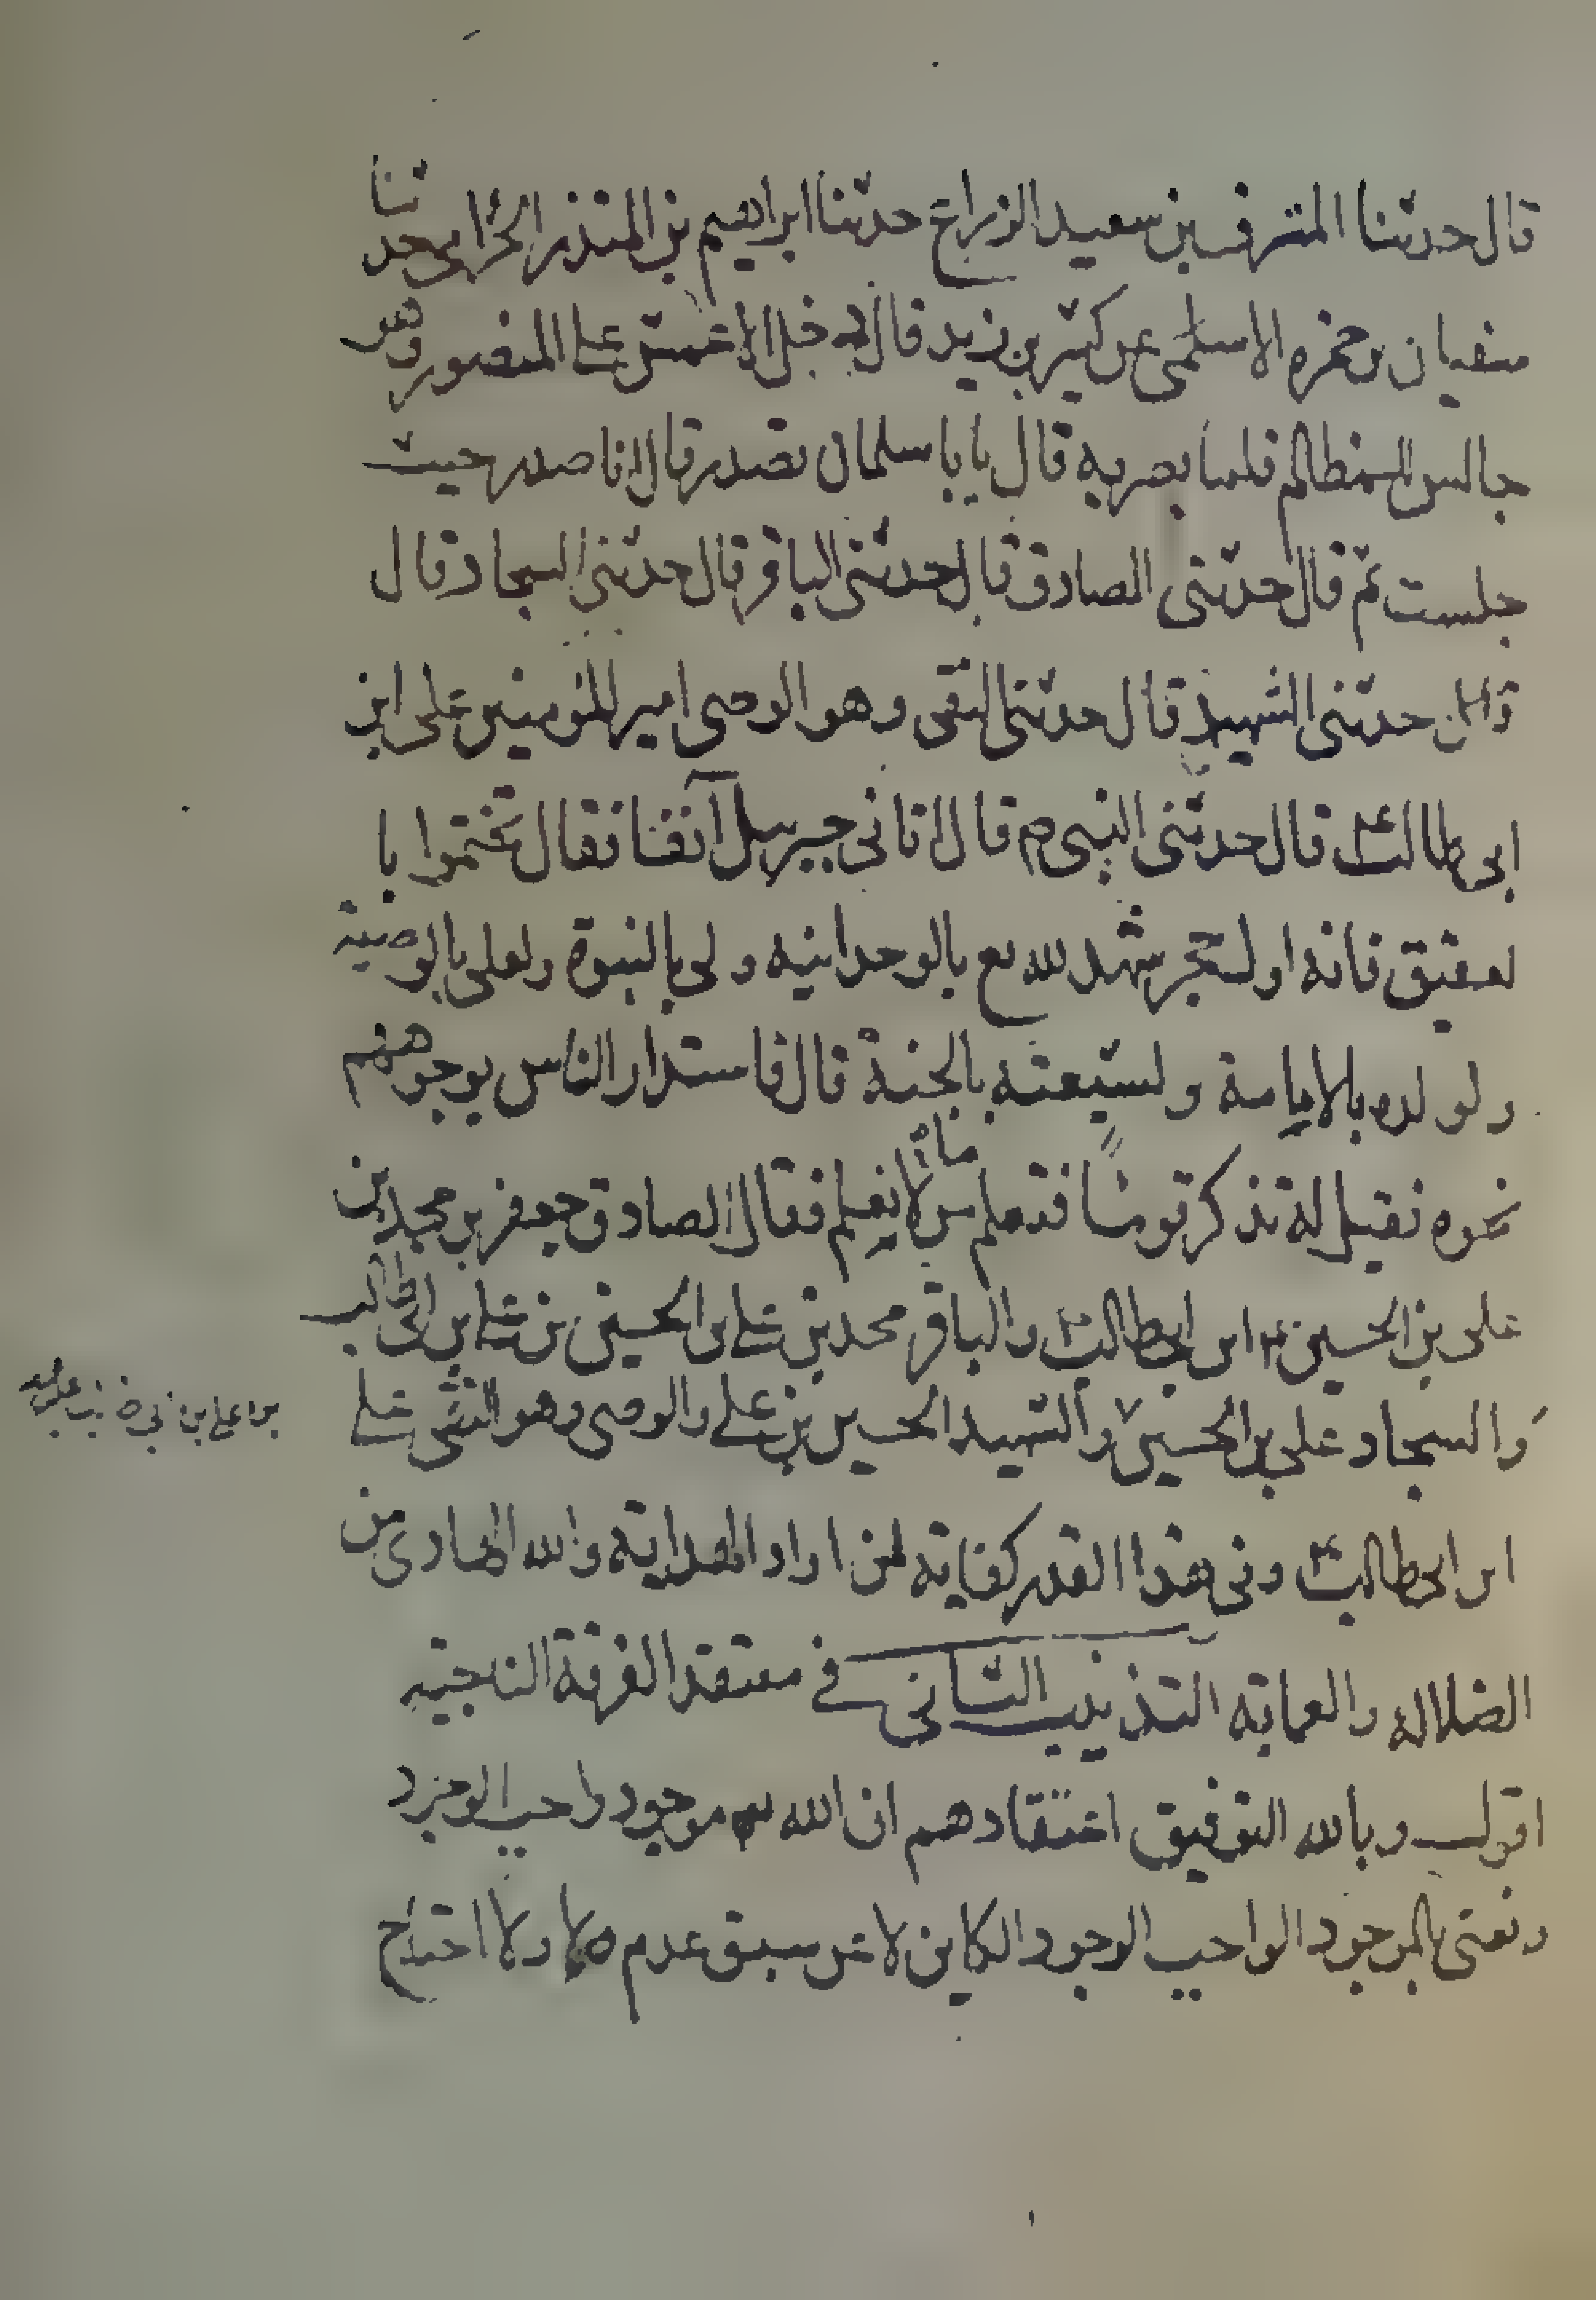 قال حدثنا المترف بن سعيد الزراع حدثنا ابراهيم بن المنذر الحزامى حدثنا
سفيان بن حمزه الاسلمى عن كثير بن زيد قال دخل الاعمش على المنصور وهو
جالس للمظالم فلما بصر به قال يا با سلمان تصدر قال انا صدر حيث
جلست ثم قال حدثنى الصادق قال حدثنى الباقر قال حدثنى السجاد قال
حدثنى الشهيد قال حدثنى التقى وهو الوصى امير المؤمنين على ابن
ابى طالب ع قال حدثنى النبى ص قال اتانى جبرسل آنفا فقال تختموا با
لعقيق فانه اول حجر شهد لله تع بالوحدانيه ولى بالنبوة ولعلى بالوصية
ولولده بالامامة ولشيعته بالجنة قال فاستدار الناس بوجوههم
نحوه فقيل له تذكر قوما فتعلم من لا نعلم فقال الصادق جعفر بن محمد بن
على بن الحسين ابن ابى طالب والباقر محمد بن على بن الحسين بن على بن ابى طالب
والسجاد على بن الحسين والشهيد الحسين بن على والوصى وهو التقى على
بن على بن ابي
ابن ابى طالب وفى هذا القدر كفاية لمن اراد الهداية والله الهادى من
الضلاله والعماية التذنيب الثانى فى معتقد الفرقة الناجية
اقول وبالله التوفيق اعتقادهم ان الله موجود واجب الوجود
ونعنى بالموجود الواجب الوجود الكاين لا عن سبق عدم ولا احتياج